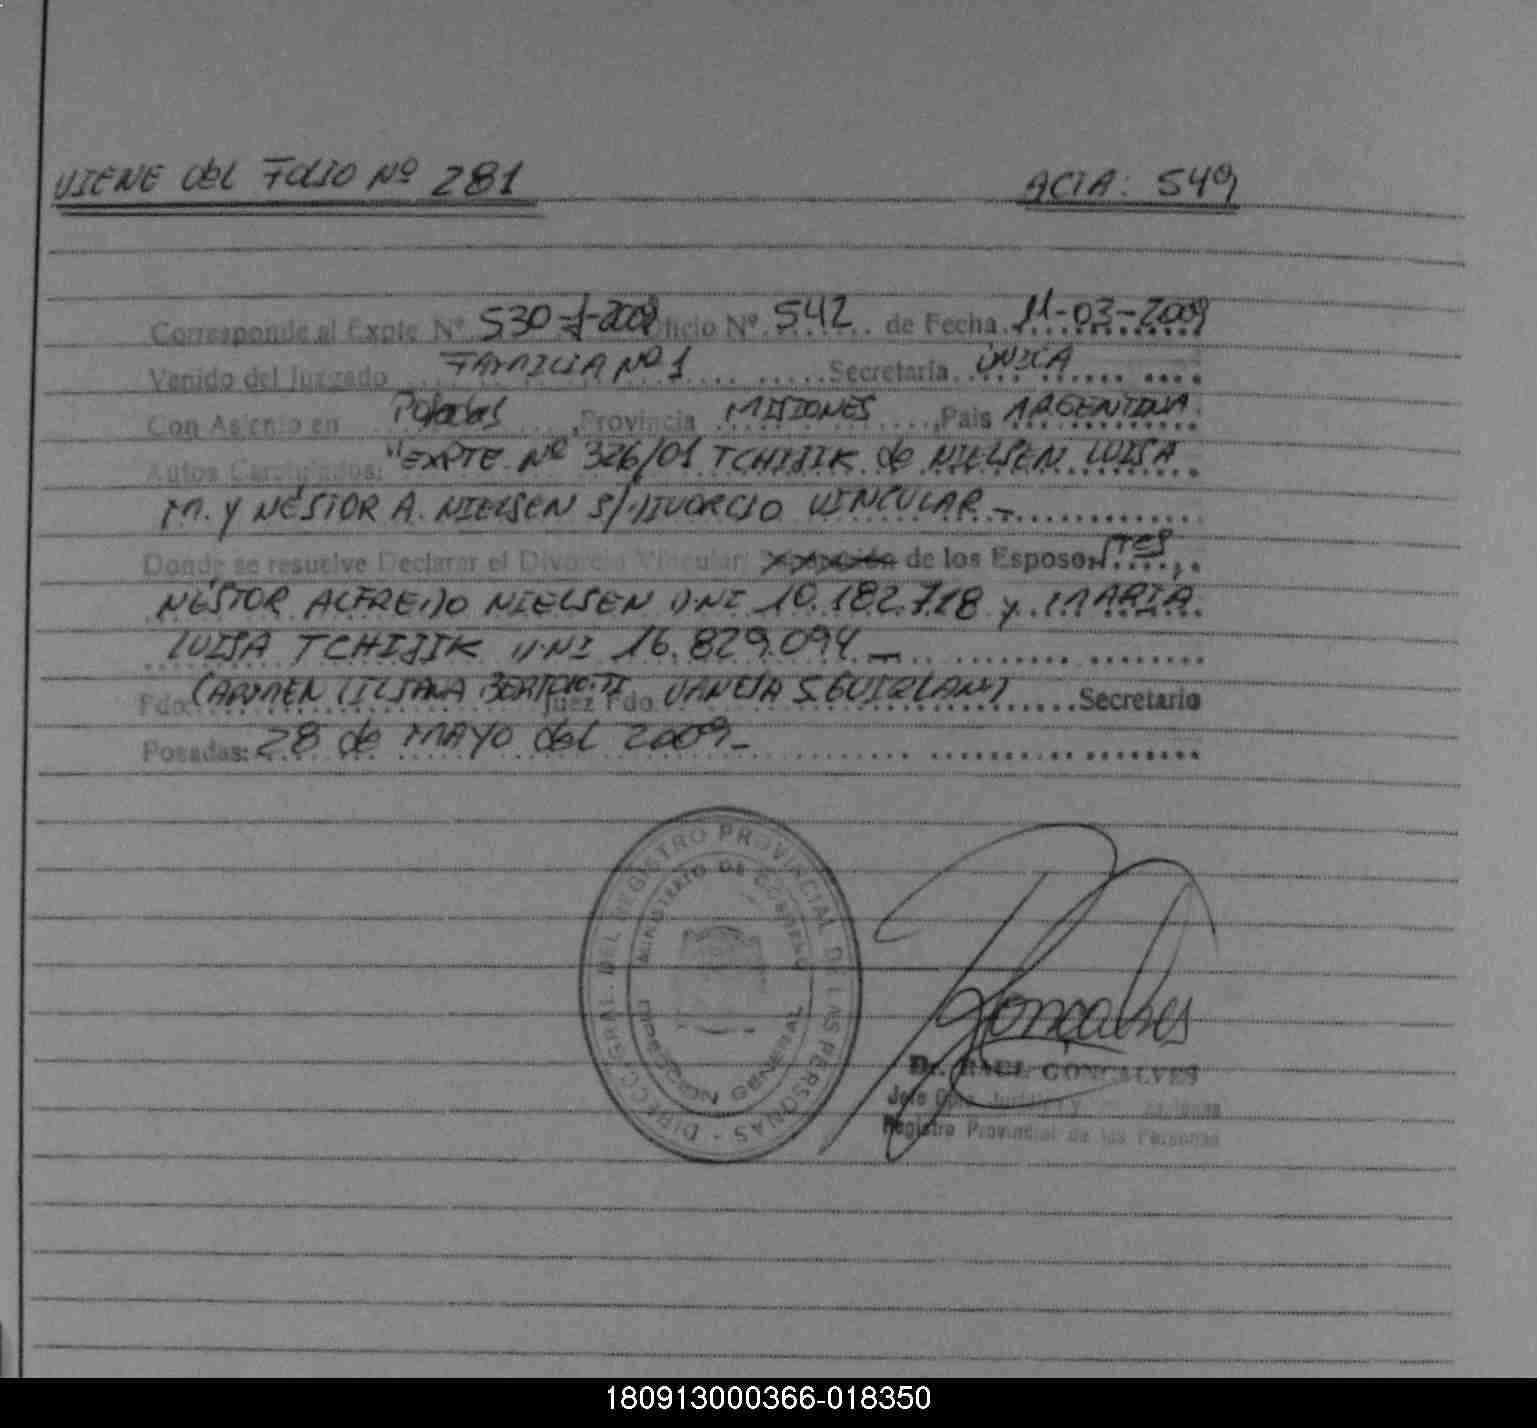 VIENE del FOLIO Nº 281 ACTA: 549
Corresponde al Expte Nº 530-J-2009 Oficio Nº 542 de Fecha 11-03-2009
Venido del Juzgado FAMILIA Nº 1 Secretaria UNICA
Con Asiento en Posadas, Provincia MISIONES, Pais ARGENTINA
Autos Caratulados: "EXPTE. Nº 326/01 TCHIJIK de NIELSEN LUISA
M. Y NÉSTOR A. NIELSEN S/DIVORCIO VINCULAR_
Donde se resuelve Declarar el Divorcio Vincular, de los Esposos
NÉSTOR ALFREDO NIELSEN DNI 10.182.718 y MARIA
LUISA TCHIJIK DNI 16.829.094_
Fdo: CARMEN LILIANA Juez Fdo. VANESA Secretario
Posadas: 28 de MAYO del 2009_
DIRECC. GRAL. DEL REGISTRO PROVINCIAL DE LAS PERSONAS
MINISTERIO DE GOBIERNO
DIRECCION GENERAL
Gonçalves
Dr. RAUL GONCALVES
Jefe Dpto.
Registro Provincial de las Personas
180913000366-018350